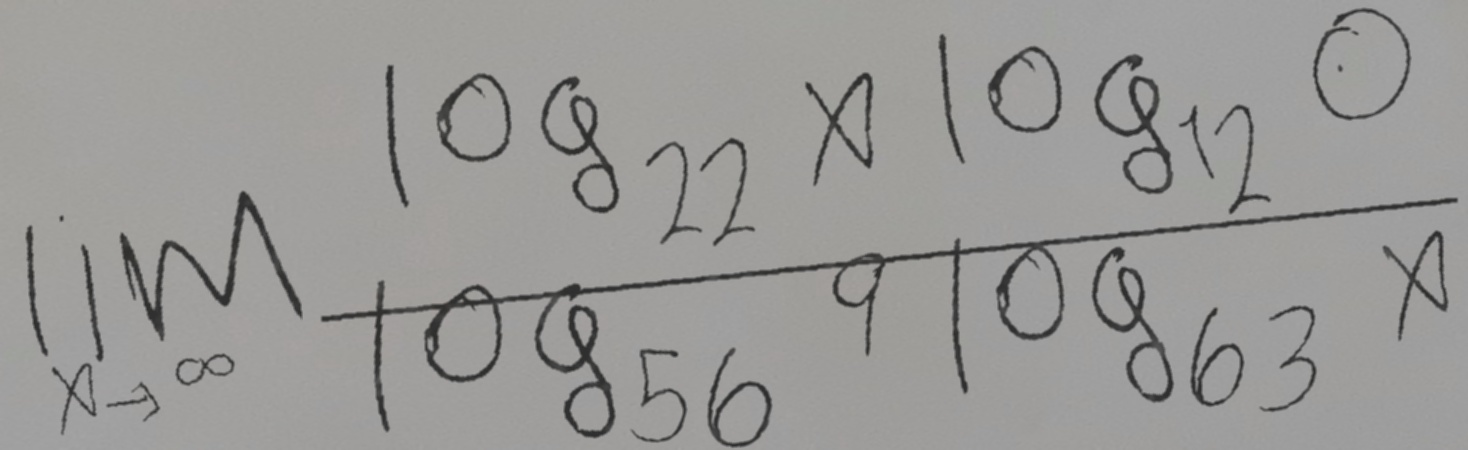 lim x→∞ (log₂₂ x log₁₂ 0) / (log₅₆ 9 log₆₃ x)